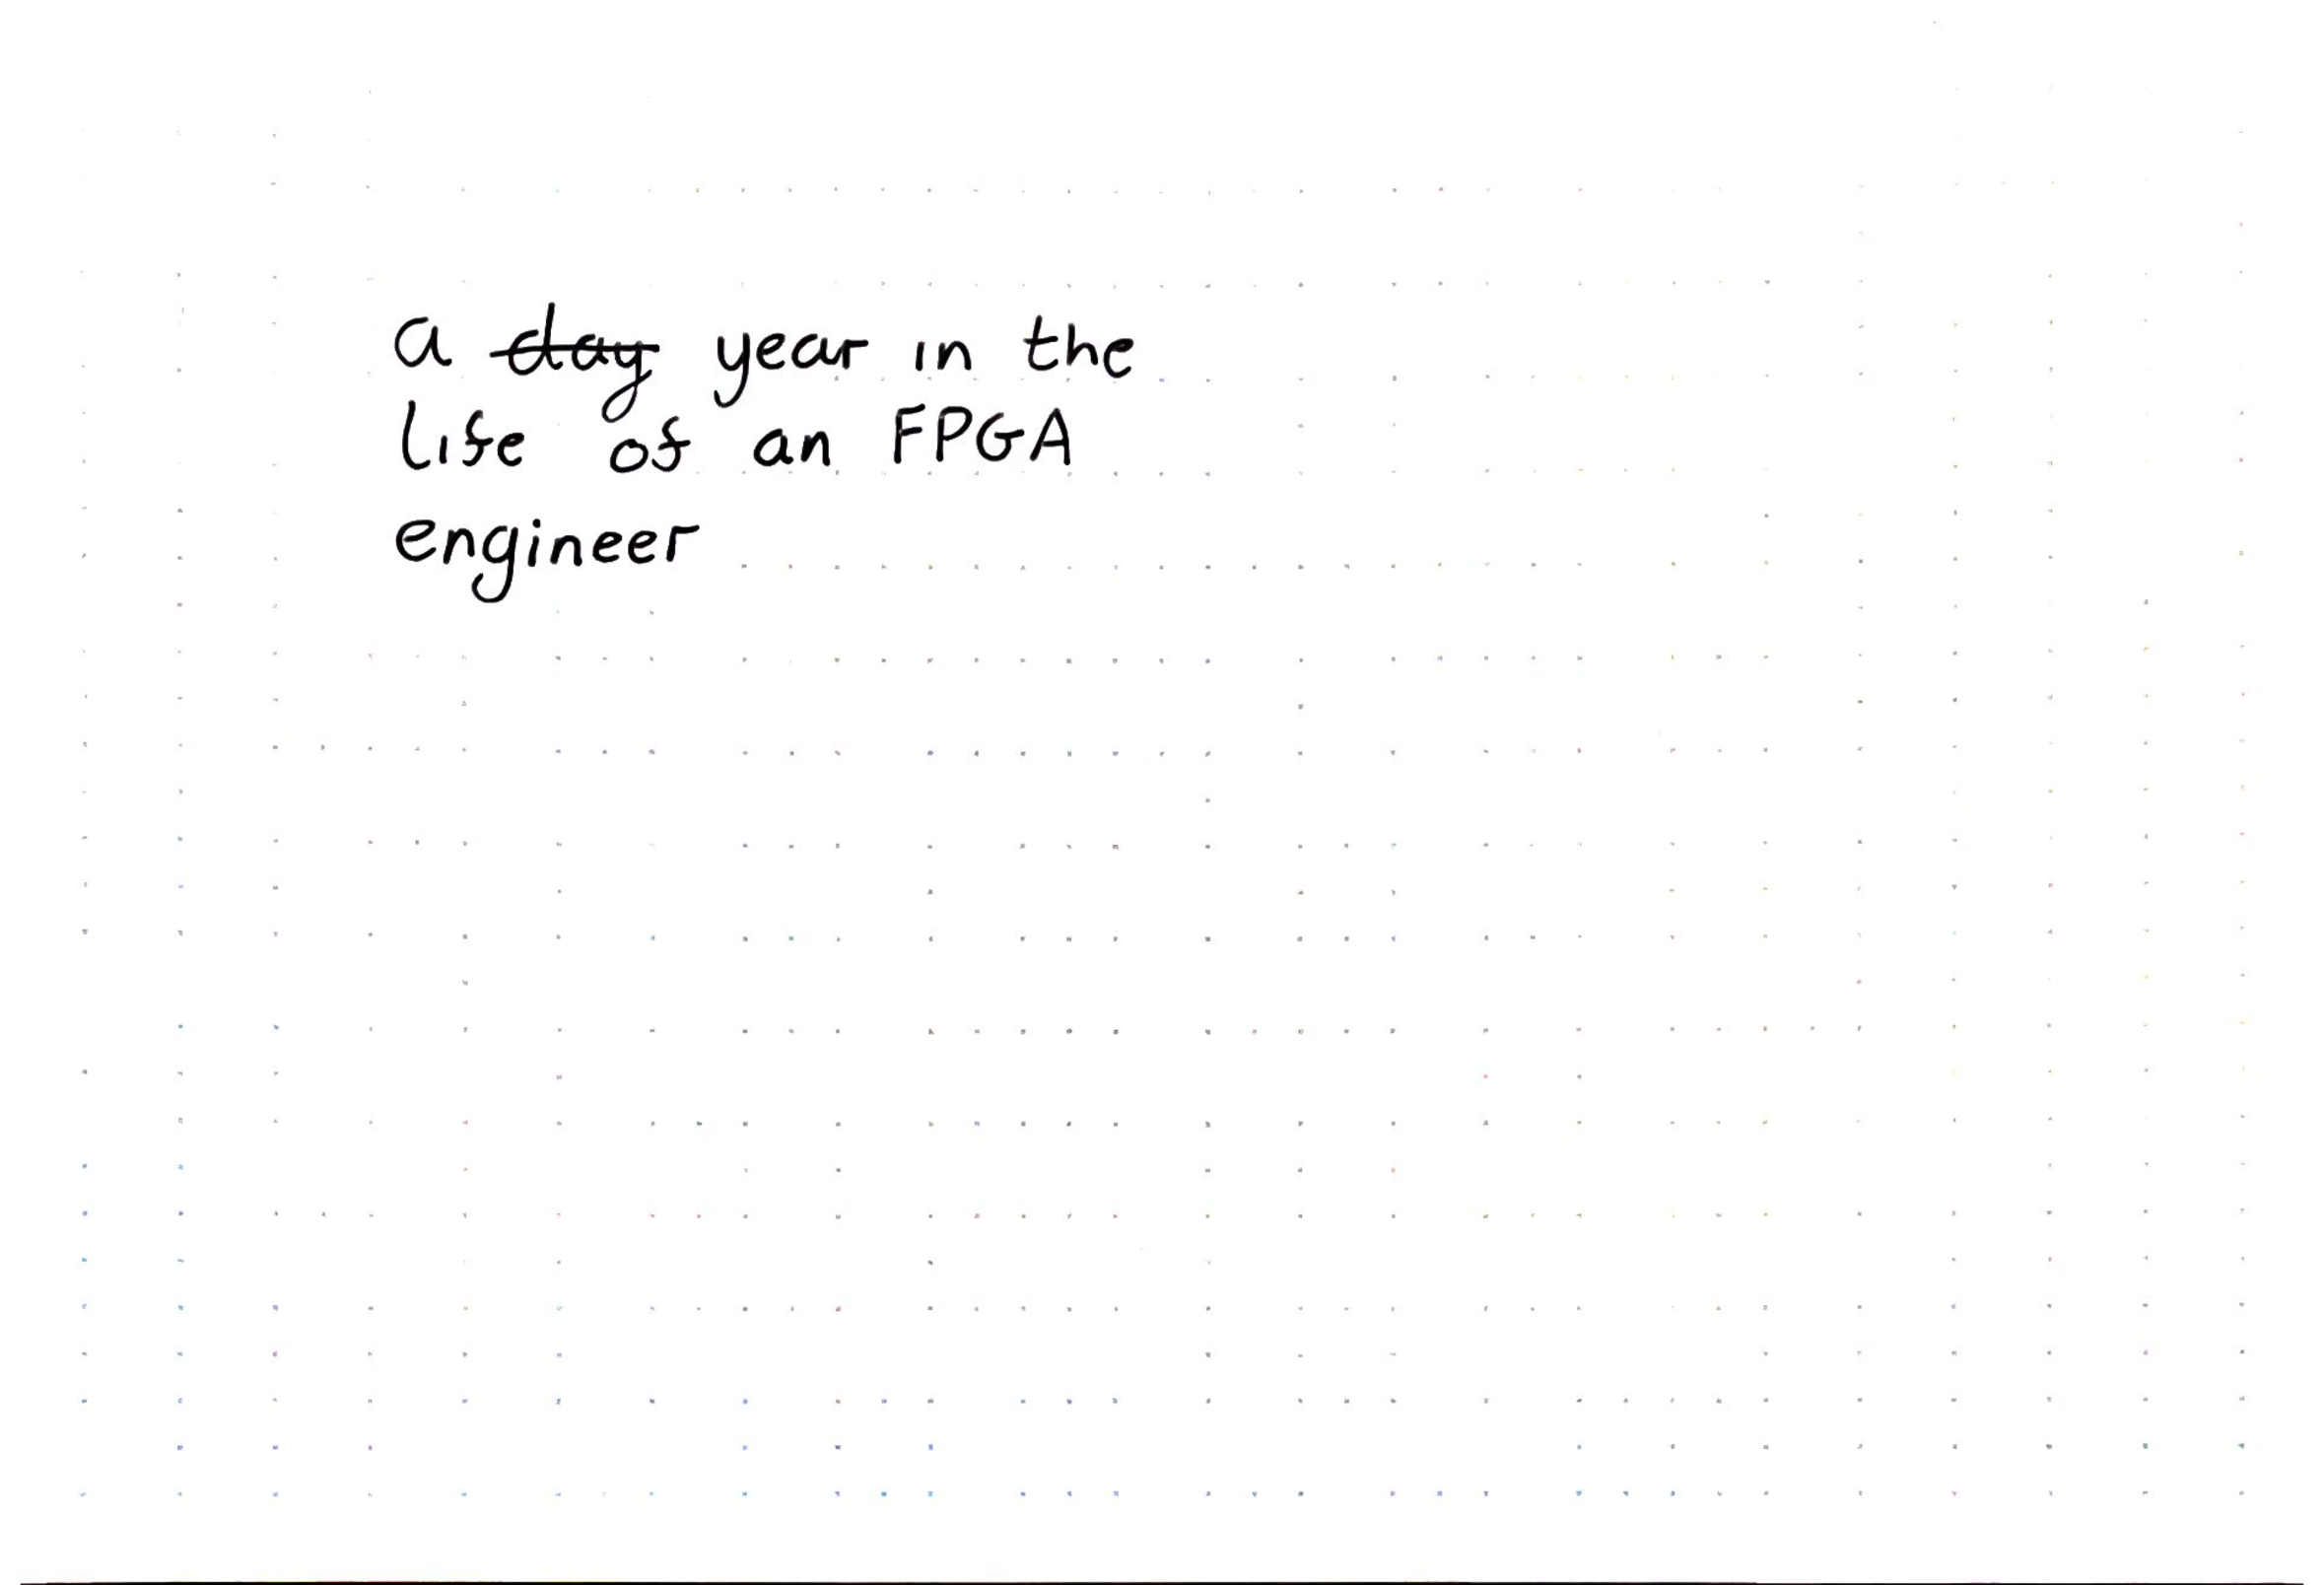 a day year in the
life of an FPGA
engineer